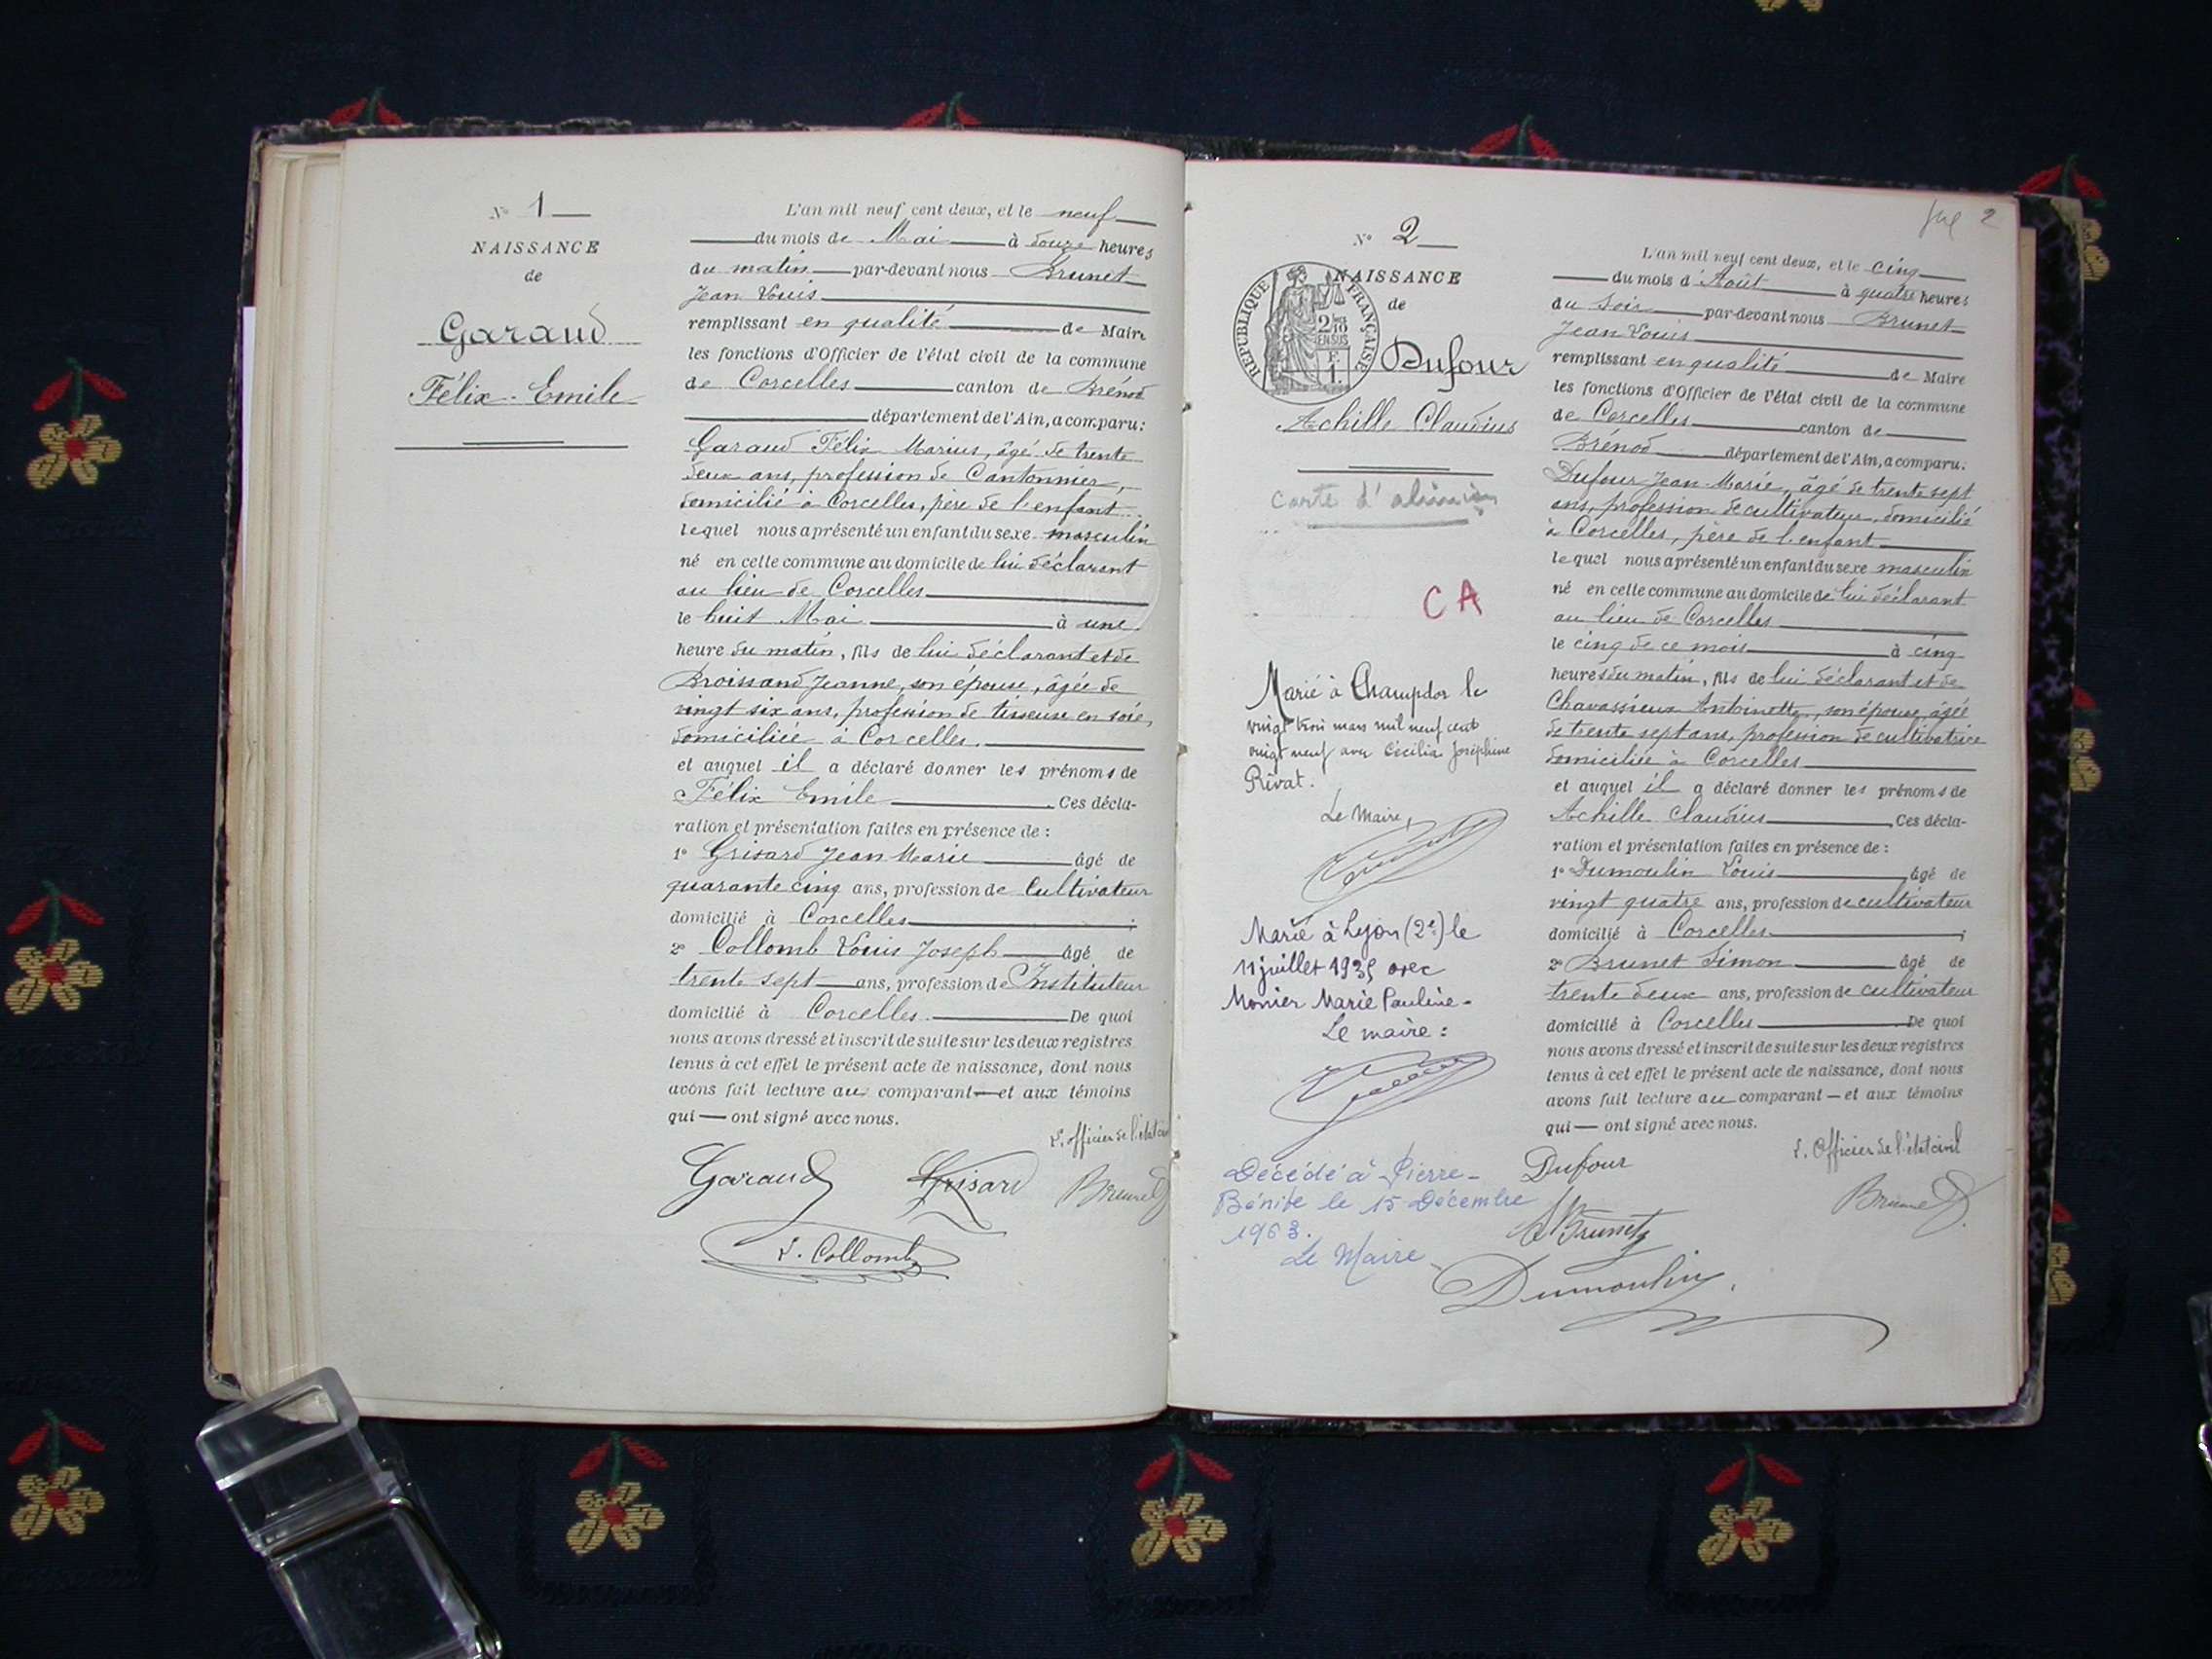 N° 1
NAISSANCE
de
Garaud
Félix Emile
L'an mil neuf cent deux, et le neuf
du mois de Mai à douze heures
du matin par-devant nous Brunet
Jean Louis
remplissant en qualité de Maire
les fonctions d'Officier de l'état civil de la commune
de Corcelles canton de Brénod
département de l'Ain, a comparu:
Garaud Félix Marius, âgé de trente
deux ans, profession de Cantonnier,
domicilié à Corcelles, père de l'enfant
lequel nous a présenté un enfant du sexe masculin
né en cette commune au domicile de lui déclarant
au lieu de Corcelles
le huit Mai à une
heure du matin, fils de lui déclarant et de
Broissand Jeanne, son épouse, âgée de
vingt six ans, profession de tisseuse en soie,
domiciliée à Corcelles.
et auquel il a déclaré donner les prénoms de
Félix Emile Ces décla-
ration et présentation faites en présence de :
1° Grisard Jean Marie âgé de
quarante cinq ans, profession de Cultivateur
domicilié à Corcelles ;
2° Collomb Louis Joseph âgé de
trente sept ans, profession d'Instituteur
domicilié à Corcelles. De quoi
nous avons dressé et inscrit de suite sur les deux registres
tenus à cet effet le présent acte de naissance, dont nous
avons fait lecture au comparant — et aux témoins
qui — ont signé avec nous.
L'officier de l'état civil
Garaud Grisard Brunet
L. Collomb
2
N° 2
NAISSANCE
de
RÉPUBLIQUE FRANÇAISE
2/10
EN SUS
F.
1.
Dufour
Achille Claudius
carte d'
CA
Marié à Champdor le
vingt trois mars mil neuf cent
vingt neuf avec Cécilia Joséphine
Rivat.
Le Maire,
Marié à Lyon (2e) le
11 juillet 1935 avec
Monier Marie Pauline.
Le maire :
Décédé à Pierre-
Bénite le 15 Décembre
1963.
Le Maire
L'an mil neuf cent deux, et le cinq
du mois d'Août à quatre heures
du soir par-devant nous Brunet
Jean Louis
remplissant en qualité de Maire
les fonctions d'Officier de l'état civil de la commune
de Corcelles canton de
Brénod département de l'Ain, a comparu:
Dufour Jean-Marie, âgé de trente sept
ans, profession de cultivateur, domicilié
à Corcelles, père de l'enfant
lequel nous a présenté un enfant du sexe masculin
né en cette commune au domicile de lui déclarant
au lieu de Corcelles
le cinq de ce mois à cinq
heures du matin, fils de lui déclarant et de
Chavassieux Antoinette, son épouse, âgée
de trente sept ans, profession de cultivatrice
domiciliée à Corcelles
et auquel il a déclaré donner les prénoms de
Achille Claudius Ces décla-
ration et présentation faites en présence de :
1° Dumoulin Louis âgé de
vingt quatre ans, profession de cultivateur
domicilié à Corcelles ;
2° Brunet Simon âgé de
trente deux ans, profession de cultivateur
domicilié à Corcelles De quoi
nous avons dressé et inscrit de suite sur les deux registres
tenus à cet effet le présent acte de naissance, dont nous
avons fait lecture au comparant — et aux témoins
qui — ont signé avec nous.
L'Officier de l'état civil
Dufour
Brunet
Brunet
Dumoulin